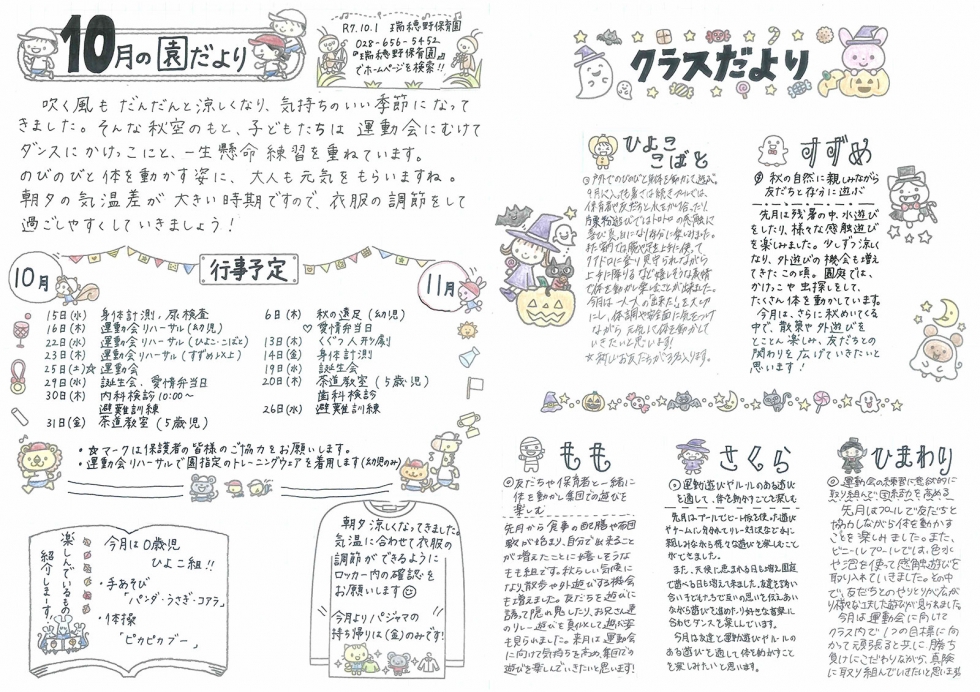 10月の園だより
R7.10.1 瑞穂野保育園
028-656-5452
『瑞穂野保育園』
でホームページを検索!!
吹く風も だんだんと涼しくなり、気持ちのいい季節になって
きました。そんな秋空のもと、子どもたちは 運動会にむけて
ダンスに かけっこにと、一生懸命 練習を重ねています。
のびのびと体を動かす姿に、大人も元気をもらいますね。
朝夕の気温差が 大きい時期ですので、衣服の調節をして
過ごしやすくしていきましょう!
行事予定
10月
15日(水) 身体計測、尿検査
16日(木) 運動会リハーサル(幼児)
22日(水) 運動会リハーサル(ひよこ・こばと)
23日(木) 運動会リハーサル(すずめ以上)
25日(土)☆運動会
29日(水) 誕生会、愛情弁当日
30日(木) 内科検診 10:00〜
避難訓練
31日(金) 茶道教室(5歳児)
11月
6日(木) 秋の遠足(幼児)
♡ 愛情弁当日
13日(木) くぐつ人形劇
14日(金) 身体計測
19日(水) 誕生会
20日(木) 茶道教室(5歳児)
歯科検診
26日(水) 避難訓練
・☆マークは保護者の皆様のご協力をお願いします。
・運動会リハーサルで園指定のトレーニングウェアを着用します(幼児のみ)
楽しんでいるもの
紹介しまーす!
今月は0歳児
ひよこ組!!
・手あそび
「パンダ・うさぎ・コアラ」
・体操
「ピカピカブー」
朝夕涼しくなってきました。
気温に合わせて衣服の
調節ができるように
ロッカー内の確認を
お願いします☺
今月よりパジャマの
持ち帰りは(金)のみです!
クラスだより
ひよこ
こばと
◎戸外でのびのびと体を動かして遊ぶ。
9月に入っても暑さが続きプールでは、
喜び、
今月は一人一人の"出来た"を大切に
し、体調や安全面に気をつけ
ながら 元気に体を動かして
いきたいと思います!
すずめ
◎ 秋の自然に親しみながら
友だちと存分に遊ぶ
先月は残暑の中、水遊び
をしたり、様々な感触遊び
を楽しみました。少しずつ涼しく
なり、外遊びの機会も増え
てきたこの頃。園庭では、
かけっこや虫探しをして、
たくさん体を動かしています。
今月は、さらに秋めいてくる
中で、散策や外遊びを
とことん楽しみ、友だちとの
関わりを広げていきたいと
思います!
もも
◎友だちや保育者と一緒に
体を動かし集団での遊びを
楽しむ
先月から食事の配膳や布団
敷が始まり、自分で出来ること
が増えたことに嬉しそうな
もも組です。秋らしい気候に
なり散歩や外遊びする機会
も増えました。友だちを遊びに
誘って隠れ鬼したり、お兄さん達
のリレー遊びを真似して遊ぶ姿
も見られました。来月は運動会
に向けて気持ちを高め、集団での
遊びを楽しんでいきたいと思います!
さくら
◎運動遊びやルールのある遊び
を通して、体を動かすことを楽しむ
先月はプールでビート板を使った遊び
やチームに分かれてリレー対決など水に
親しみながら様々な遊びを楽しむこと
ができました。
また、天候に恵まれる日も増え園庭
で遊べる日も増えました。友達と誘い
合う子どもたちで互いの思いを伝えあい
ながら遊びを進めたり、好きな音楽に
合わせダンスを楽しんでいます。
今月は友達と運動遊びやルールの
ある遊びを通して体を動かすこと
を楽しみたいと思います。
ひまわり
◎運動会の練習に意欲的に
取り組んで団結力を高める
先月はプールで友だちと
協力しながら体を動かす
ことを楽しみました。また、
ビニールプールでは、色水
や泡を使って感触遊びを
取り入れていきました。その中
で、友だちとのやりとりが広が
り様々な工夫した遊びが見られました。
今月は運動会に向けて
クラス内で1つの目標に向
かって頑張ると共に、勝ち
負けにこだわりながら、真剣
に取り組んでいきたいと思います。